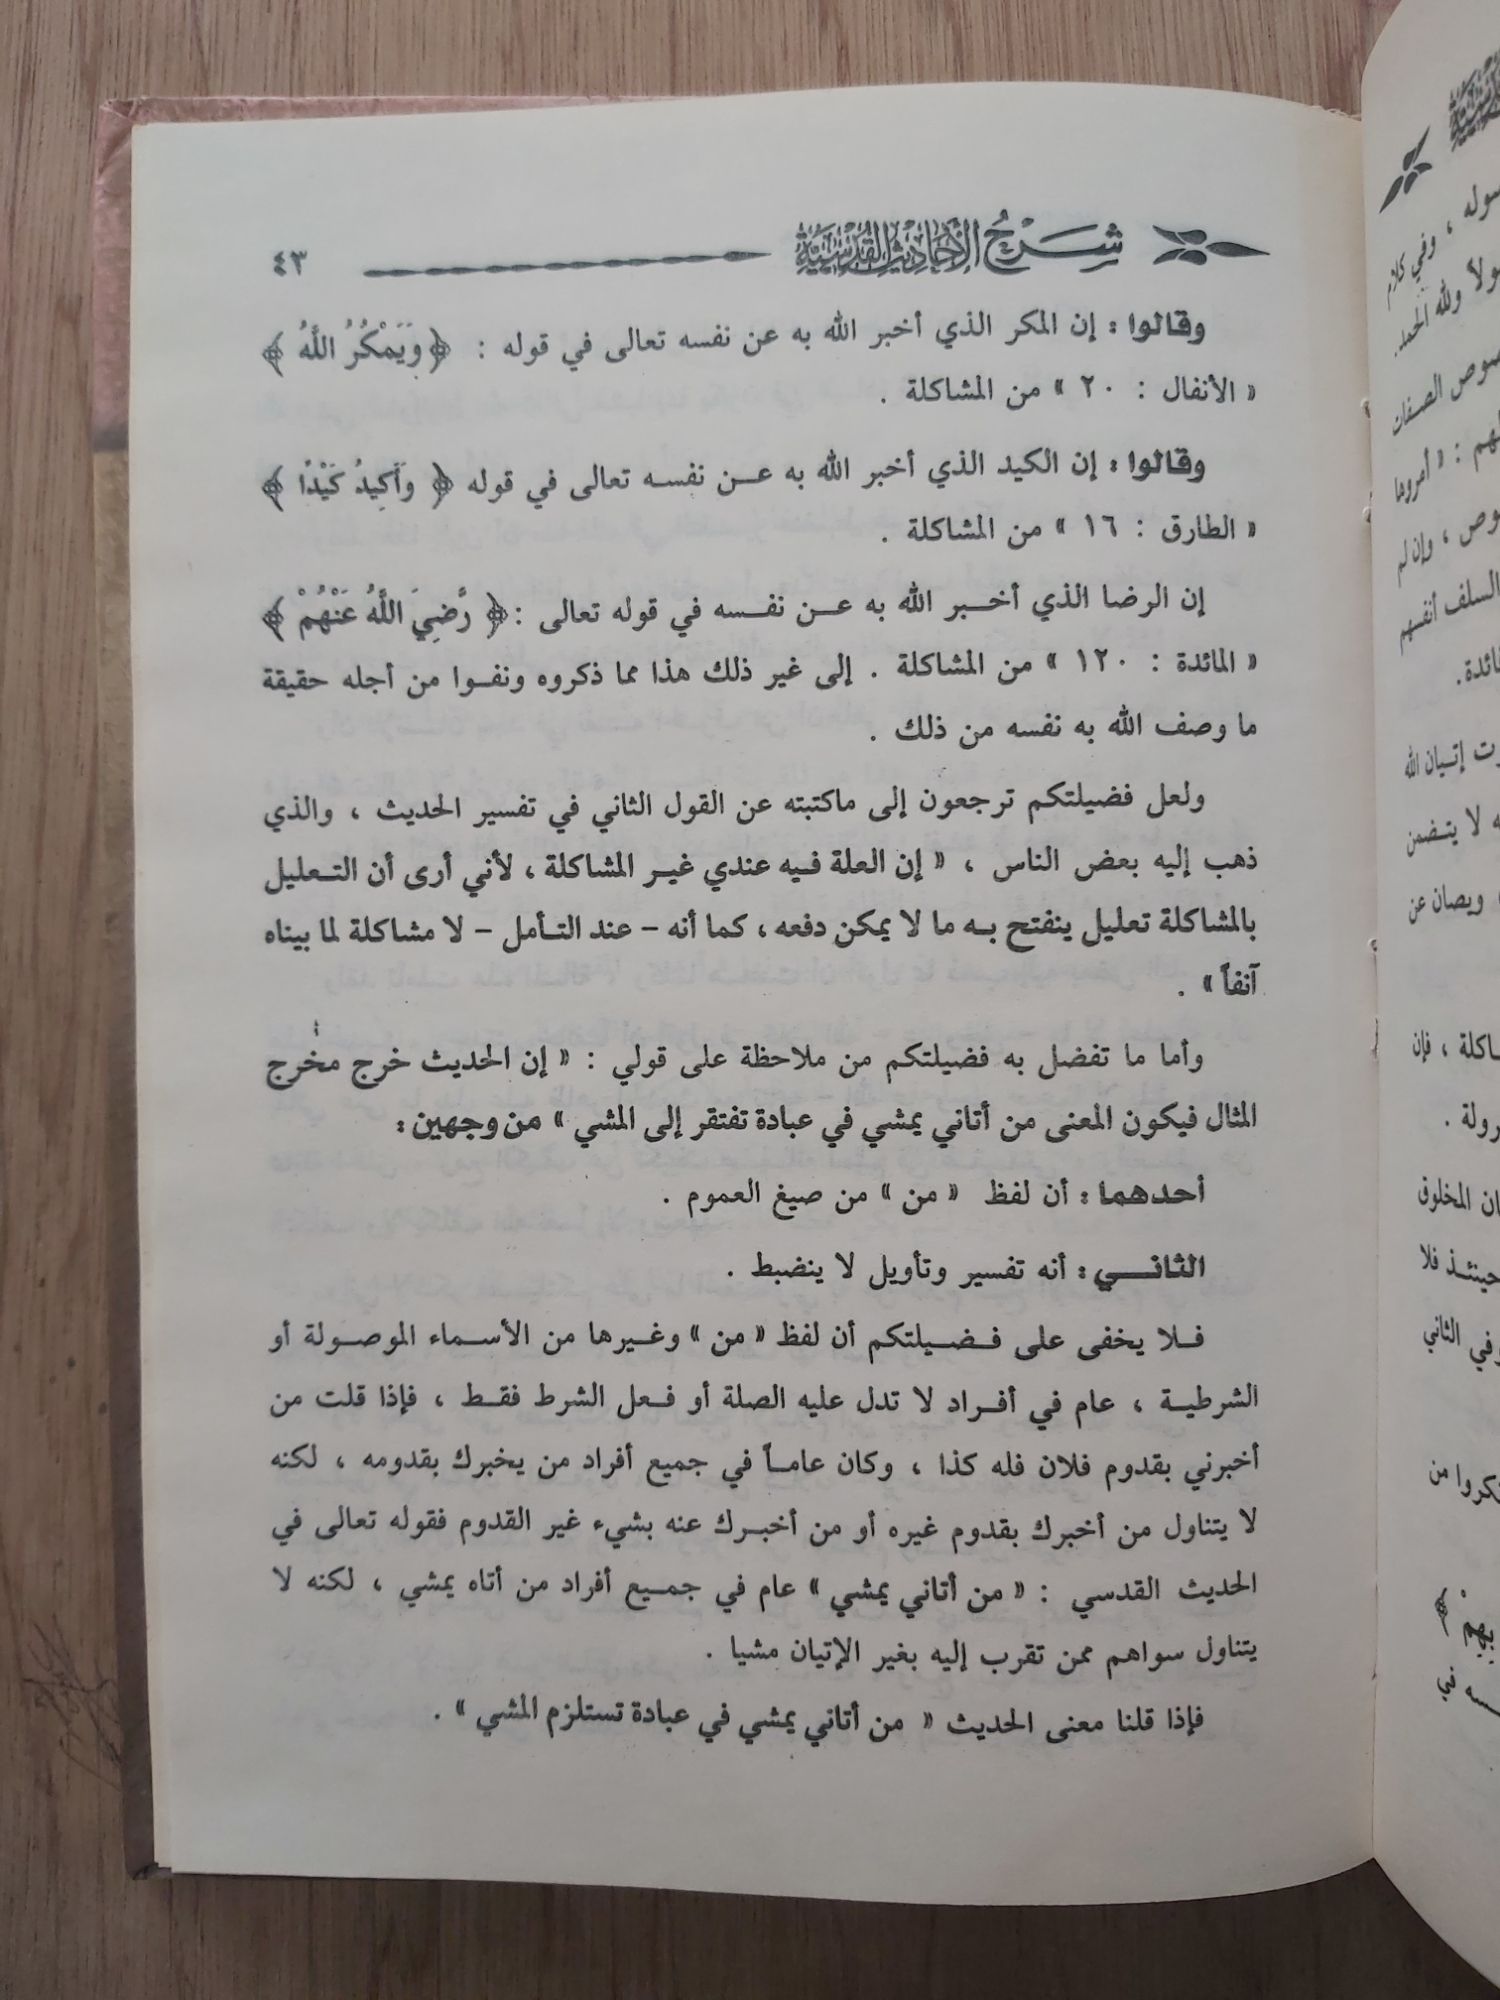 شرح الأحاديث القدسية
٤٣
وقالوا : إن المكر الذي أخبر الله به عن نفسه تعالى في قوله : ﴿ وَيَمْكُرُ اللَّهُ ﴾
« الأنفال : ٢٠ » من المشاكلة .
وقالوا : إن الكيد الذي أخبر الله به عن نفسه تعالى في قوله ﴿ وَأَكِيدُ كَيْدًا ﴾
« الطارق : ١٦ » من المشاكلة .
إن الرضا الذي أخبر الله به عن نفسه في قوله تعالى : ﴿ رَّضِيَ اللَّهُ عَنْهُمْ ﴾
« المائدة : ١٢٠ » من المشاكلة . إلى غير ذلك هذا مما ذكروه ونفوا من أجله حقيقة
ما وصف الله به نفسه من ذلك .
ولعل فضيلتكم ترجعون إلى ماكتبته عن القول الثاني في تفسير الحديث ، والذي
ذهب إليه بعض الناس ، « إن العلة فيه عندي غير المشاكلة ، لأني أرى أن التعليل
بالمشاكلة تعليل ينفتح به ما لا يمكن دفعه ، كما أنه - عند التأمل - لا مشاكلة لما بيناه
آنفاً » .
وأما ما تفضل به فضيلتكم من ملاحظة على قولي : « إن الحديث خرج مخرج
المثال فيكون المعنى من أتاني يمشي في عبادة تفتقر إلى المشي » من وجهين :
أحدهما : أن لفظ « من » من صيغ العموم .
الثاني : أنه تفسير وتأويل لا ينضبط .
فلا يخفى على فضيلتكم أن لفظ « من » وغيرها من الأسماء الموصولة أو
الشرطية ، عام في أفراد لا تدل عليه الصلة أو فعل الشرط فقط ، فإذا قلت من
أخبرني بقدوم فلان فله كذا ، وكان عاماً في جميع أفراد من يخبرك بقدومه ، لكنه
لا يتناول من أخبرك بقدوم غيره أو من أخبرك عنه بشيء غير القدوم فقوله تعالى في
الحديث القدسي : « من أتاني يمشي » عام في جميع أفراد من أتاه يمشي ، لكنه لا
يتناول سواهم ممن تقرب إليه بغير الإتيان مشيا .
فإذا قلنا معنى الحديث « من أتاني يمشي في عبادة تستلزم المشي » .